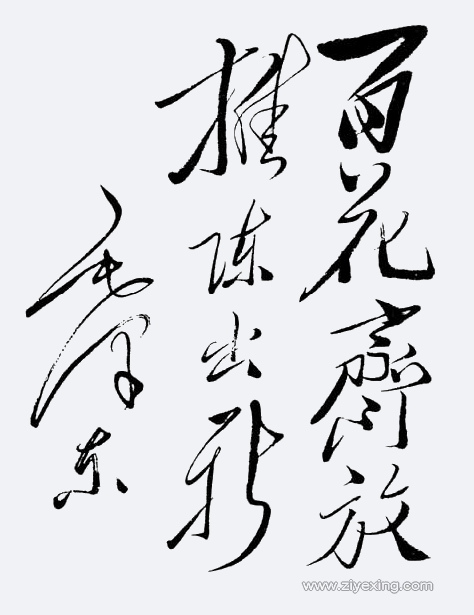 百花齊放
推陈出新
毛泽东
www.ziyexing.com